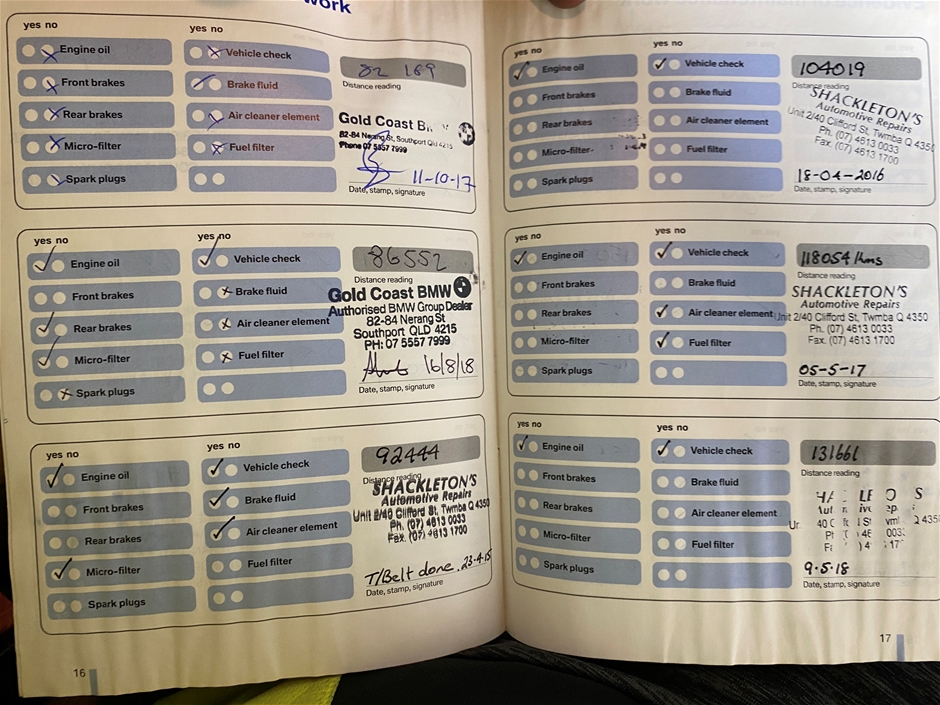 work
yes no
yes no
Engine oil
Vehicle check
Front brakes
Brake fluid
Rear brakes
Air cleaner element
Micro-filter
Fuel filter
Spark plugs
82 169
Distance reading
Gold Coast
82-84 Nerang St, Southport Qld 4215
Phone 07 5557 7999
11-10-17
Date, stamp, signature
yes no
yes no
Engine oil
Vehicle check
Front brakes
Brake fluid
Rear brakes
Air cleaner element
Micro-filter
Fuel filter
Spark plugs
86552
Distance reading
Gold Coast BMW
Authorised BMW Group Dealer
82-84 Nerang St
Southport QLD 4215
PH: 07 5557 7999
16/8/18
Date, stamp, signature
yes no
yes no
Engine oil
Vehicle check
Front brakes
Brake fluid
Rear brakes
Air cleaner element
Micro-filter
Fuel filter
Spark plugs
92444
Distance reading
SHACKLETON'S
Automotive Repairs
Unit 2/40 Clifford St, Twmba Q 4350
Ph. (07) 4613 0033
Fax. (07) 4613 1700
T/Belt done. 23-4-15
Date, stamp, signature
16
yes no
yes no
Engine oil
Vehicle check
Front brakes
Brake fluid
Rear brakes
Air cleaner element
Micro-filter
Fuel filter
Spark plugs
104019
Distance reading
SHACKLETON'S
Automotive Repairs
Unit 2/40 Clifford St, Twmba Q 4350
Ph. (07) 4613 0033
Fax. (07) 4613 1700
18-04-2016
Date, stamp, signature
yes no
yes no
Engine oil
Vehicle check
Front brakes
Brake fluid
Rear brakes
Air cleaner element
Micro-filter
Fuel filter
Spark plugs
118054 kms
Distance reading
SHACKLETON'S
Automotive Repairs
Unit 2/40 Clifford St, Twmba Q 4350
Ph. (07) 4613 0033
Fax. (07) 4613 1700
05-5-17
Date, stamp, signature
yes no
yes no
Engine oil
Vehicle check
Front brakes
Brake fluid
Rear brakes
Air cleaner element
Micro-filter
Fuel filter
Spark plugs
131661
Distance reading
9.5.18
Date, stamp, signature
17